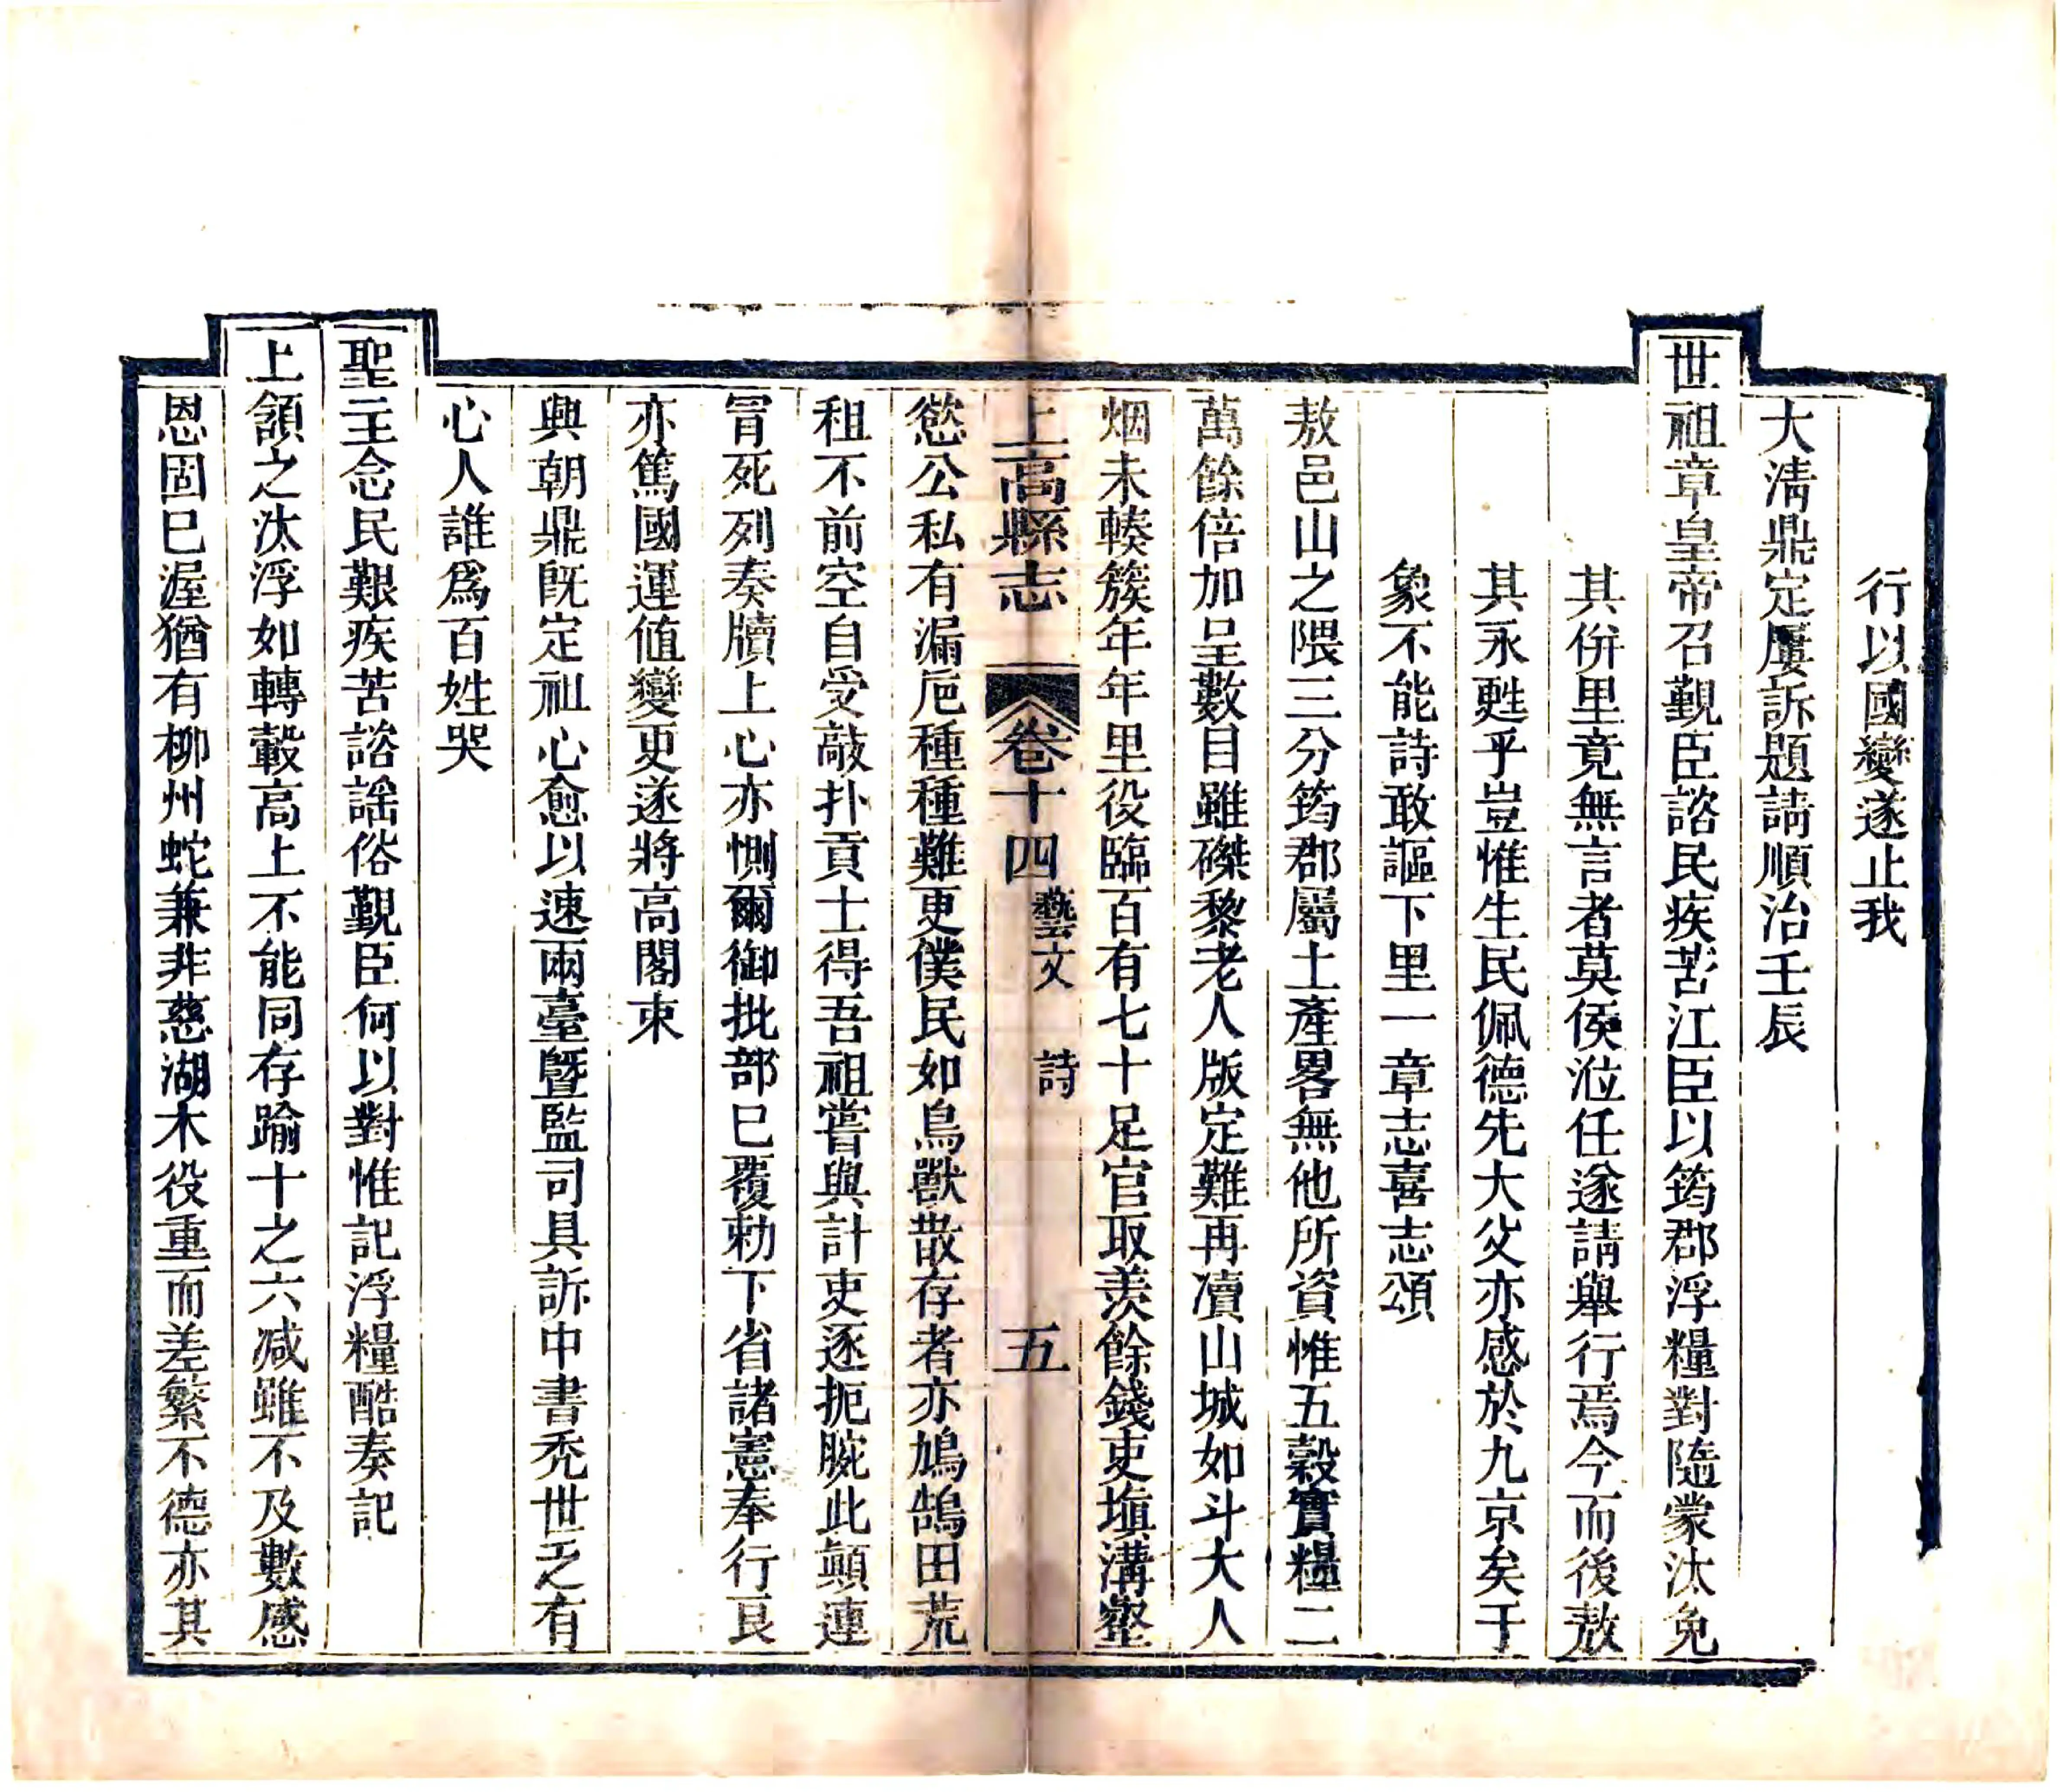 行以國變遂止我
大淸鼎定屢訴題請順治壬辰
世祖章皇帝召覲臣諮民疾苦江臣以筠郡浮糧對隨蒙汰免
其併里竟無言者莫侯涖任遂請舉行焉今而後敖
其永甦乎豈惟生民佩德先大父亦感於九京矣于
象不能詩敢謳下里一章志喜志頌
敖邑山之隈三分筠郡屬土產畧無他所資惟五穀實糧二
萬餘倍加呈數目雖磔黎老人版定難再凟山城如斗大人
烟未輳簇年年里役臨百有七十足官取羨餘錢吏塡溝壑
上高縣志 卷十四 藝文 詩 五
慾公私有漏巵種種難更僕民如鳥獸散存者亦鳩鵠田荒
租不前空自受敲扑貢士得吾祖嘗與計吏逐扼腕此顛連
冐死列奏牘上心亦惻爾御批部巳覆勅下省諸憲奉行艮
亦篤國運値變更遂將高閣束
興朝鼎旣定祉心愈以速兩臺曁監司具訴中書禿世乏有
心人誰爲百姓哭
聖主念民艱疾苦諮謡俗覲臣何以對惟記浮糧酷奏記
上頷之汰浮如轉轂高上不能同存踰十之六减雖不及數感
恩固巳渥猶有柳州蛇兼非慈湖木役重而差繁不德亦其